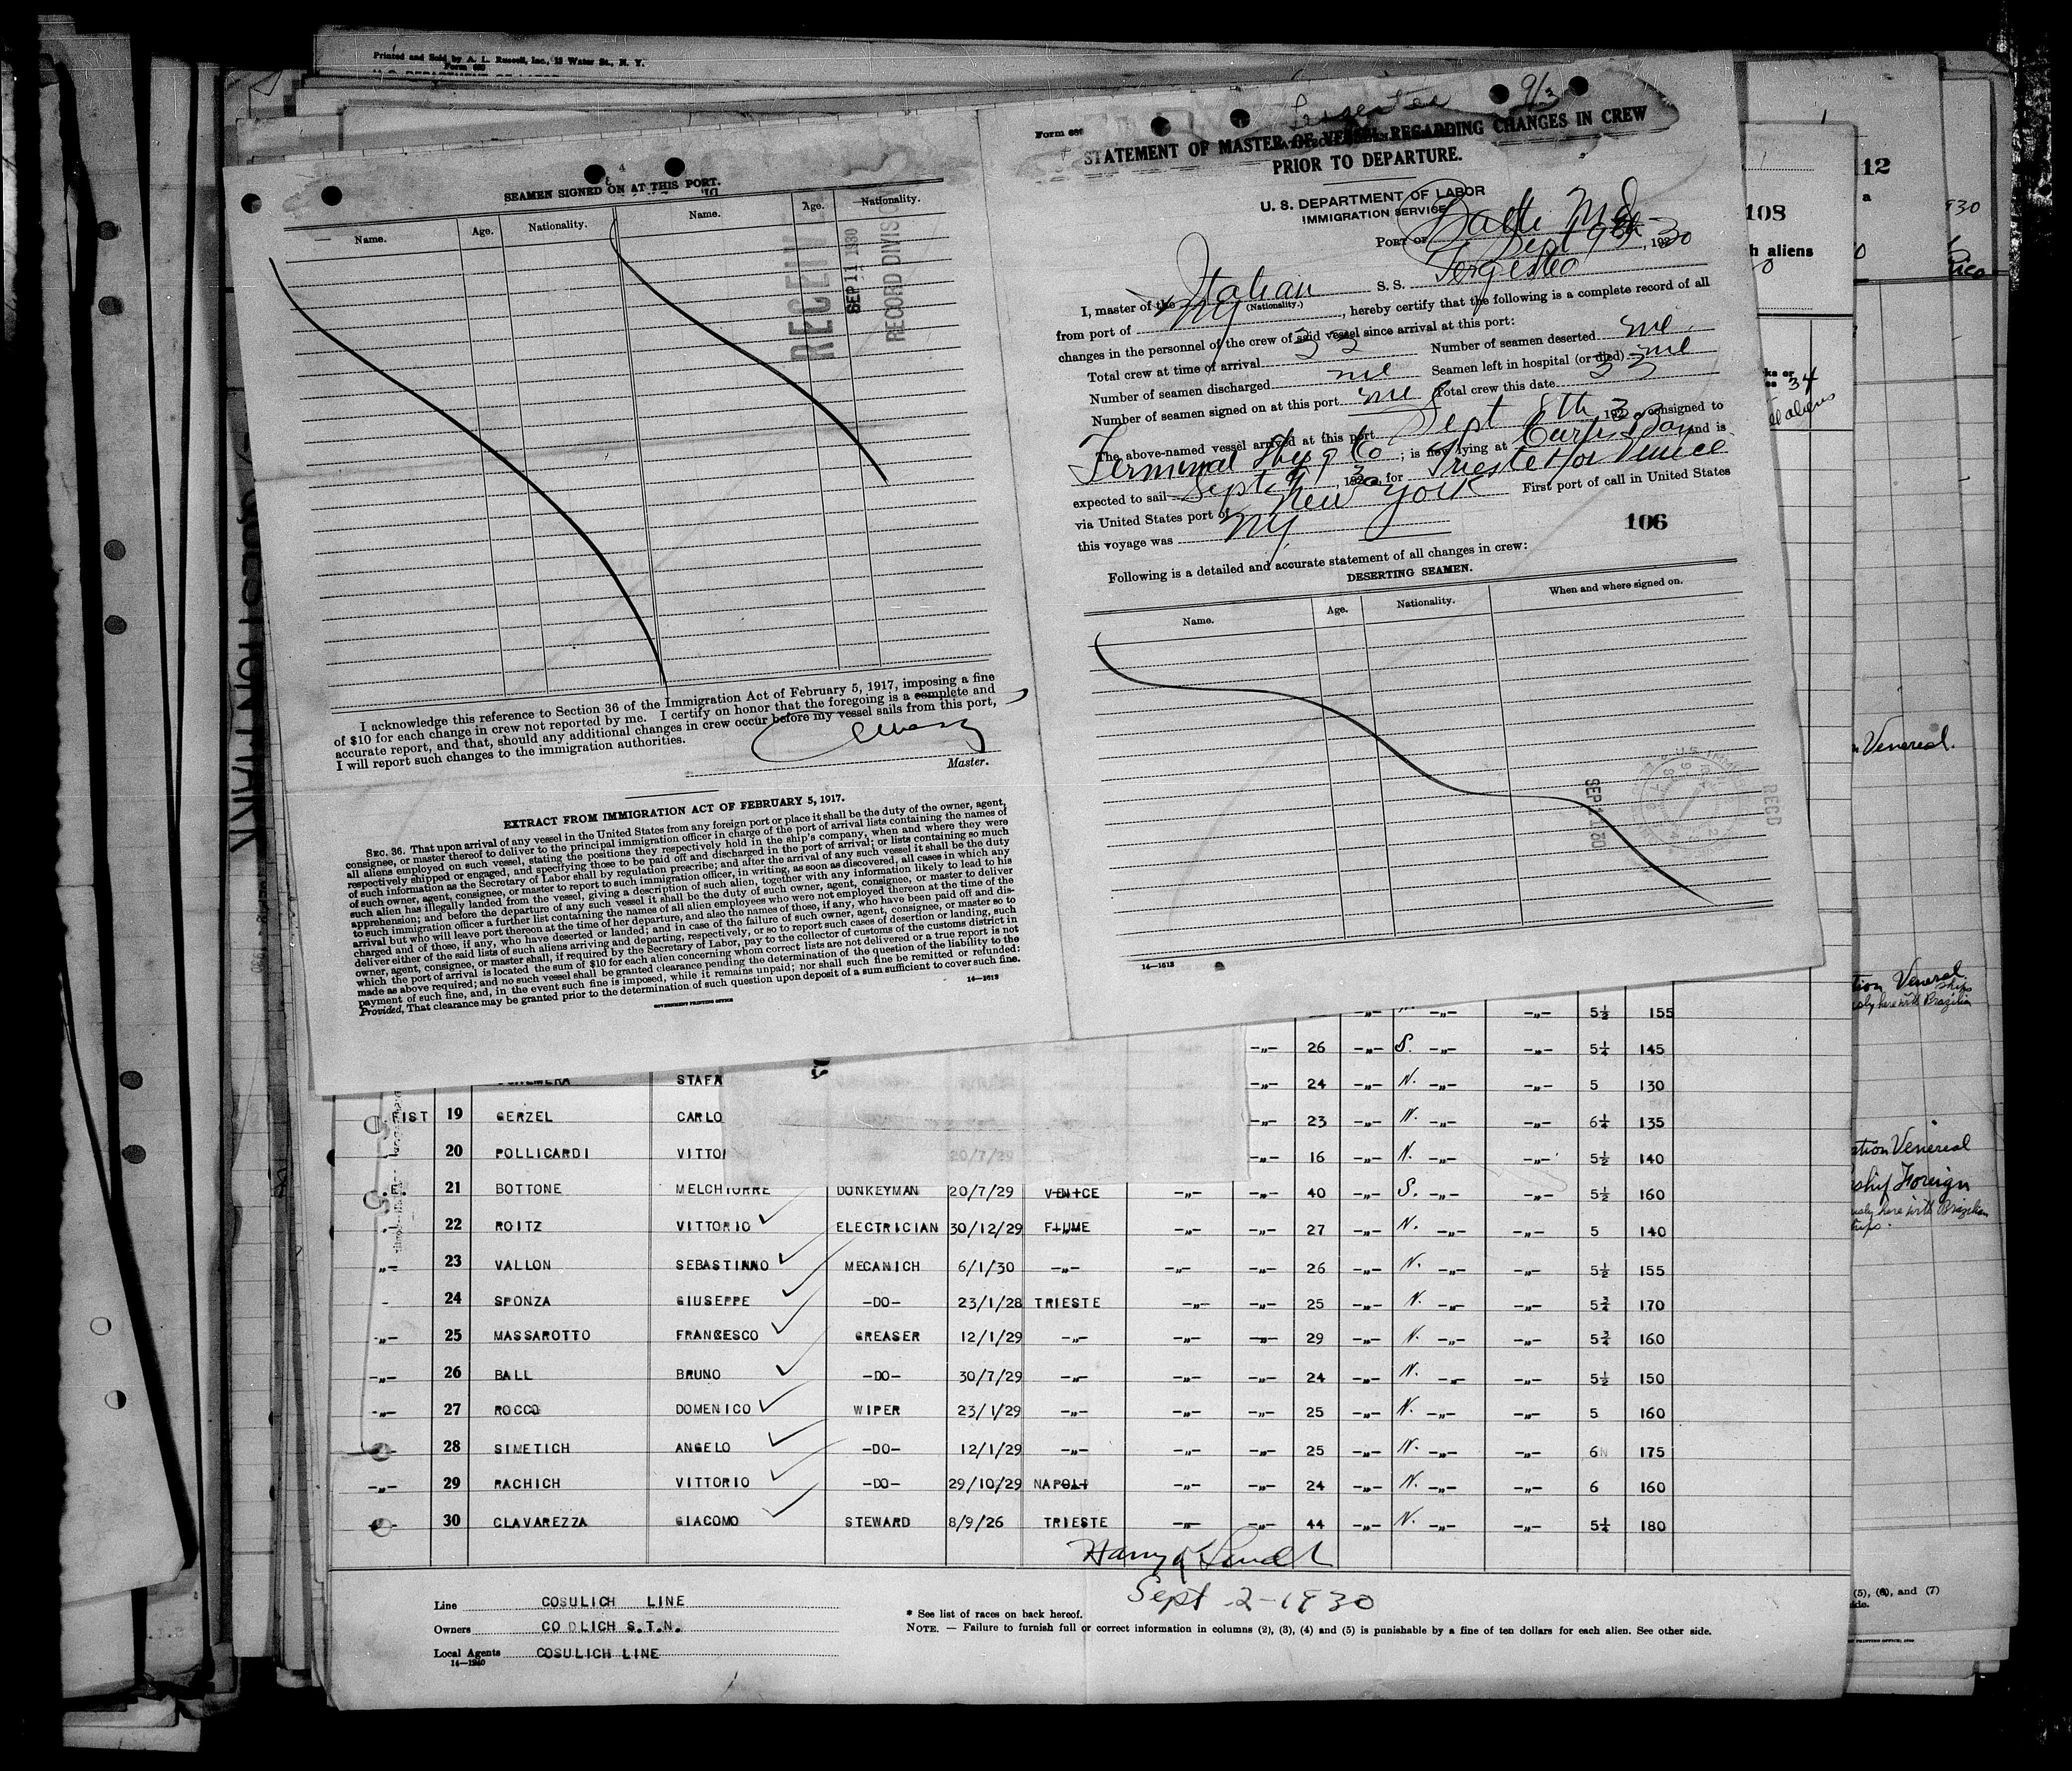 Printed and Sold by A. L. Russell, Inc., 15 Water St., N. Y.
Form 680
SEAMEN SIGNED ON AT THIS PORT.
Name. Age. Nationality. Name. Age. Nationality.
RECEIV
SEP 11 1930
RECORD DIVISIO
I acknowledge this reference to Section 36 of the Immigration Act of February 5, 1917, imposing a fine
of $10 for each change in crew not reported by me. I certify on honor that the foregoing is a complete and
accurate report, and that, should any additional changes in crew occur before my vessel sails from this port,
I will report such changes to the immigration authorities.
Master.
EXTRACT FROM IMMIGRATION ACT OF FEBRUARY 5, 1917.
SEC. 36. That upon arrival of any vessel in the United States from any foreign port or place it shall be the duty of the owner, agent,
consignee, or master thereof to deliver to the principal immigration officer in charge of the port of arrival lists containing the names of
all aliens employed on such vessel, stating the positions they respectively hold in the ship's company, when and where they were
respectively shipped or engaged, and specifying those to be paid off and discharged in the port of arrival; or lists containing so much
of such information as the Secretary of Labor shall by regulation prescribe; and after the arrival of any such vessel it shall be the duty
of such owner, agent, consignee, or master to report to such immigration officer, in writing, as soon as discovered, all cases in which any
such alien has illegally landed from the vessel, giving a description of such alien, together with any information likely to lead to his
apprehension; and before the departure of any such vessel it shall be the duty of such owner, agent, consignee, or master to deliver
to such immigration officer a further list containing the names of all alien employees who were not employed thereon at the time of the
arrival but who will leave port thereon at the time of her departure, and also the names of those, if any, who have been paid off and dis-
charged and of those, if any, who have deserted or landed; and in case of the failure of such owner, agent, consignee, or master so to
deliver either of the said lists of such aliens arriving and departing, respectively, or so to report such cases of desertion or landing, such
owner, agent, consignee, or master shall, if required by the Secretary of Labor, pay to the collector of customs of the customs district in
which the port of arrival is located the sum of $10 for each alien concerning whom correct lists are not delivered or a true report is not
made as above required; and no such vessel shall be granted clearance pending the determination of the question of the liability to the
payment of such fine, and, in the event such fine is imposed, while it remains unpaid; nor shall such fine be remitted or refunded:
Provided, That clearance may be granted prior to the determination of such question upon deposit of a sum sufficient to cover such fine.
14—1613
GOVERNMENT PRINTING OFFICE
Form 689
Tergesteo 9/3
STATEMENT OF MASTER OF VESSEL REGARDING CHANGES IN CREW
PRIOR TO DEPARTURE.
U. S. DEPARTMENT OF LABOR
IMMIGRATION SERVICE
PORT OF Balti Md
Sept 9th, 1930
I, master of the Italian S. S. Tergesteo
(Nationality.)
from port of NY, hereby certify that the following is a complete record of all
changes in the personnel of the crew of said vessel since arrival at this port:
Total crew at time of arrival 33 Number of seamen deserted nil
Number of seamen discharged nil Seamen left in hospital (or died) nil
Number of seamen signed on at this port nil Total crew this date 33
The above-named vessel arrived at this port Sept 8th, 1930, consigned to
Terminal Shipg Co; is now lying at Curtis Bay and is
expected to sail Sept 9, 1930 for Trieste Hor Venice
via United States port of New York First port of call in United States
this voyage was NY
106
Following is a detailed and accurate statement of all changes in crew:
DESERTING SEAMEN.
Name. Age. Nationality. When and where signed on.
REC'D
14—1613
112
108
h aliens
34
aliens
Venereal.
tion Veneral
ation Venereal
ship Foreign
here with Brazilian
ships.
—„— —„— —„— 5½ 155
—„— 26 —„— S. —„— —„— 5¼ 145
STAFA —„— 24 —„— N. —„— —„— 5 130
FIST 19 GERZEL CARLO —„— 23 —„— N. —„— —„— 6¼ 135
20 POLLICARDI VITTO 20/7/29 —„— 16 —„— N. —„— —„— 5½ 140
.E. 21 BOTTONE MELCHIORRE DONKEYMAN 20/7/29 VENICE —„— —„— 40 —„— S. —„— —„— 5½ 160
22 ROITZ VITTORIO ELECTRICIAN 30/12/29 FIUME —„— —„— 27 —„— N. —„— —„— 5 140
—„— 23 VALLON SEBASTIANO MECANICH 6/1/30 —„— —„— —„— 26 —„— N. —„— —„— 5½ 155
24 SPONZA GIUSEPPE —DO— 23/1/28 TRIESTE —„— —„— 25 —„— N. —„— —„— 5¾ 170
—„— 25 MASSAROTTO FRANCESCO GREASER 12/1/29 —„— —„— —„— 29 —„— N. —„— —„— 5¾ 160
—„— 26 BALL BRUNO —DO— 30/7/29 —„— —„— —„— 24 —„— N. —„— —„— 5½ 150
—„— 27 ROCCO DOMENICO WIPER 23/1/29 —„— —„— —„— 25 —„— N. —„— —„— 5 160
28 SIMETICH ANGELO —DO— 12/1/29 —„— —„— —„— 25 —„— N. —„— —„— 6 175
—„— 29 RACHICH VITTORIO —DO— 29/10/29 NAPOLI —„— —„— 24 —„— N. —„— —„— 6 160
—„— 30 CLAVAREZZA GIACOMO STEWARD 8/9/26 TRIESTE —„— —„— 44 —„— N. —„— —„— 5¼ 180
Sept 2-1930
Line COSULICH LINE
Owners CO DLICH S.T.N.
Local Agents COSULICH LINE
14—1240
* See list of races on back hereof.
NOTE. — Failure to furnish full or correct information in columns (2), (3), (4) and (5) is punishable by a fine of ten dollars for each alien. See other side.
(5), (6), and (7)